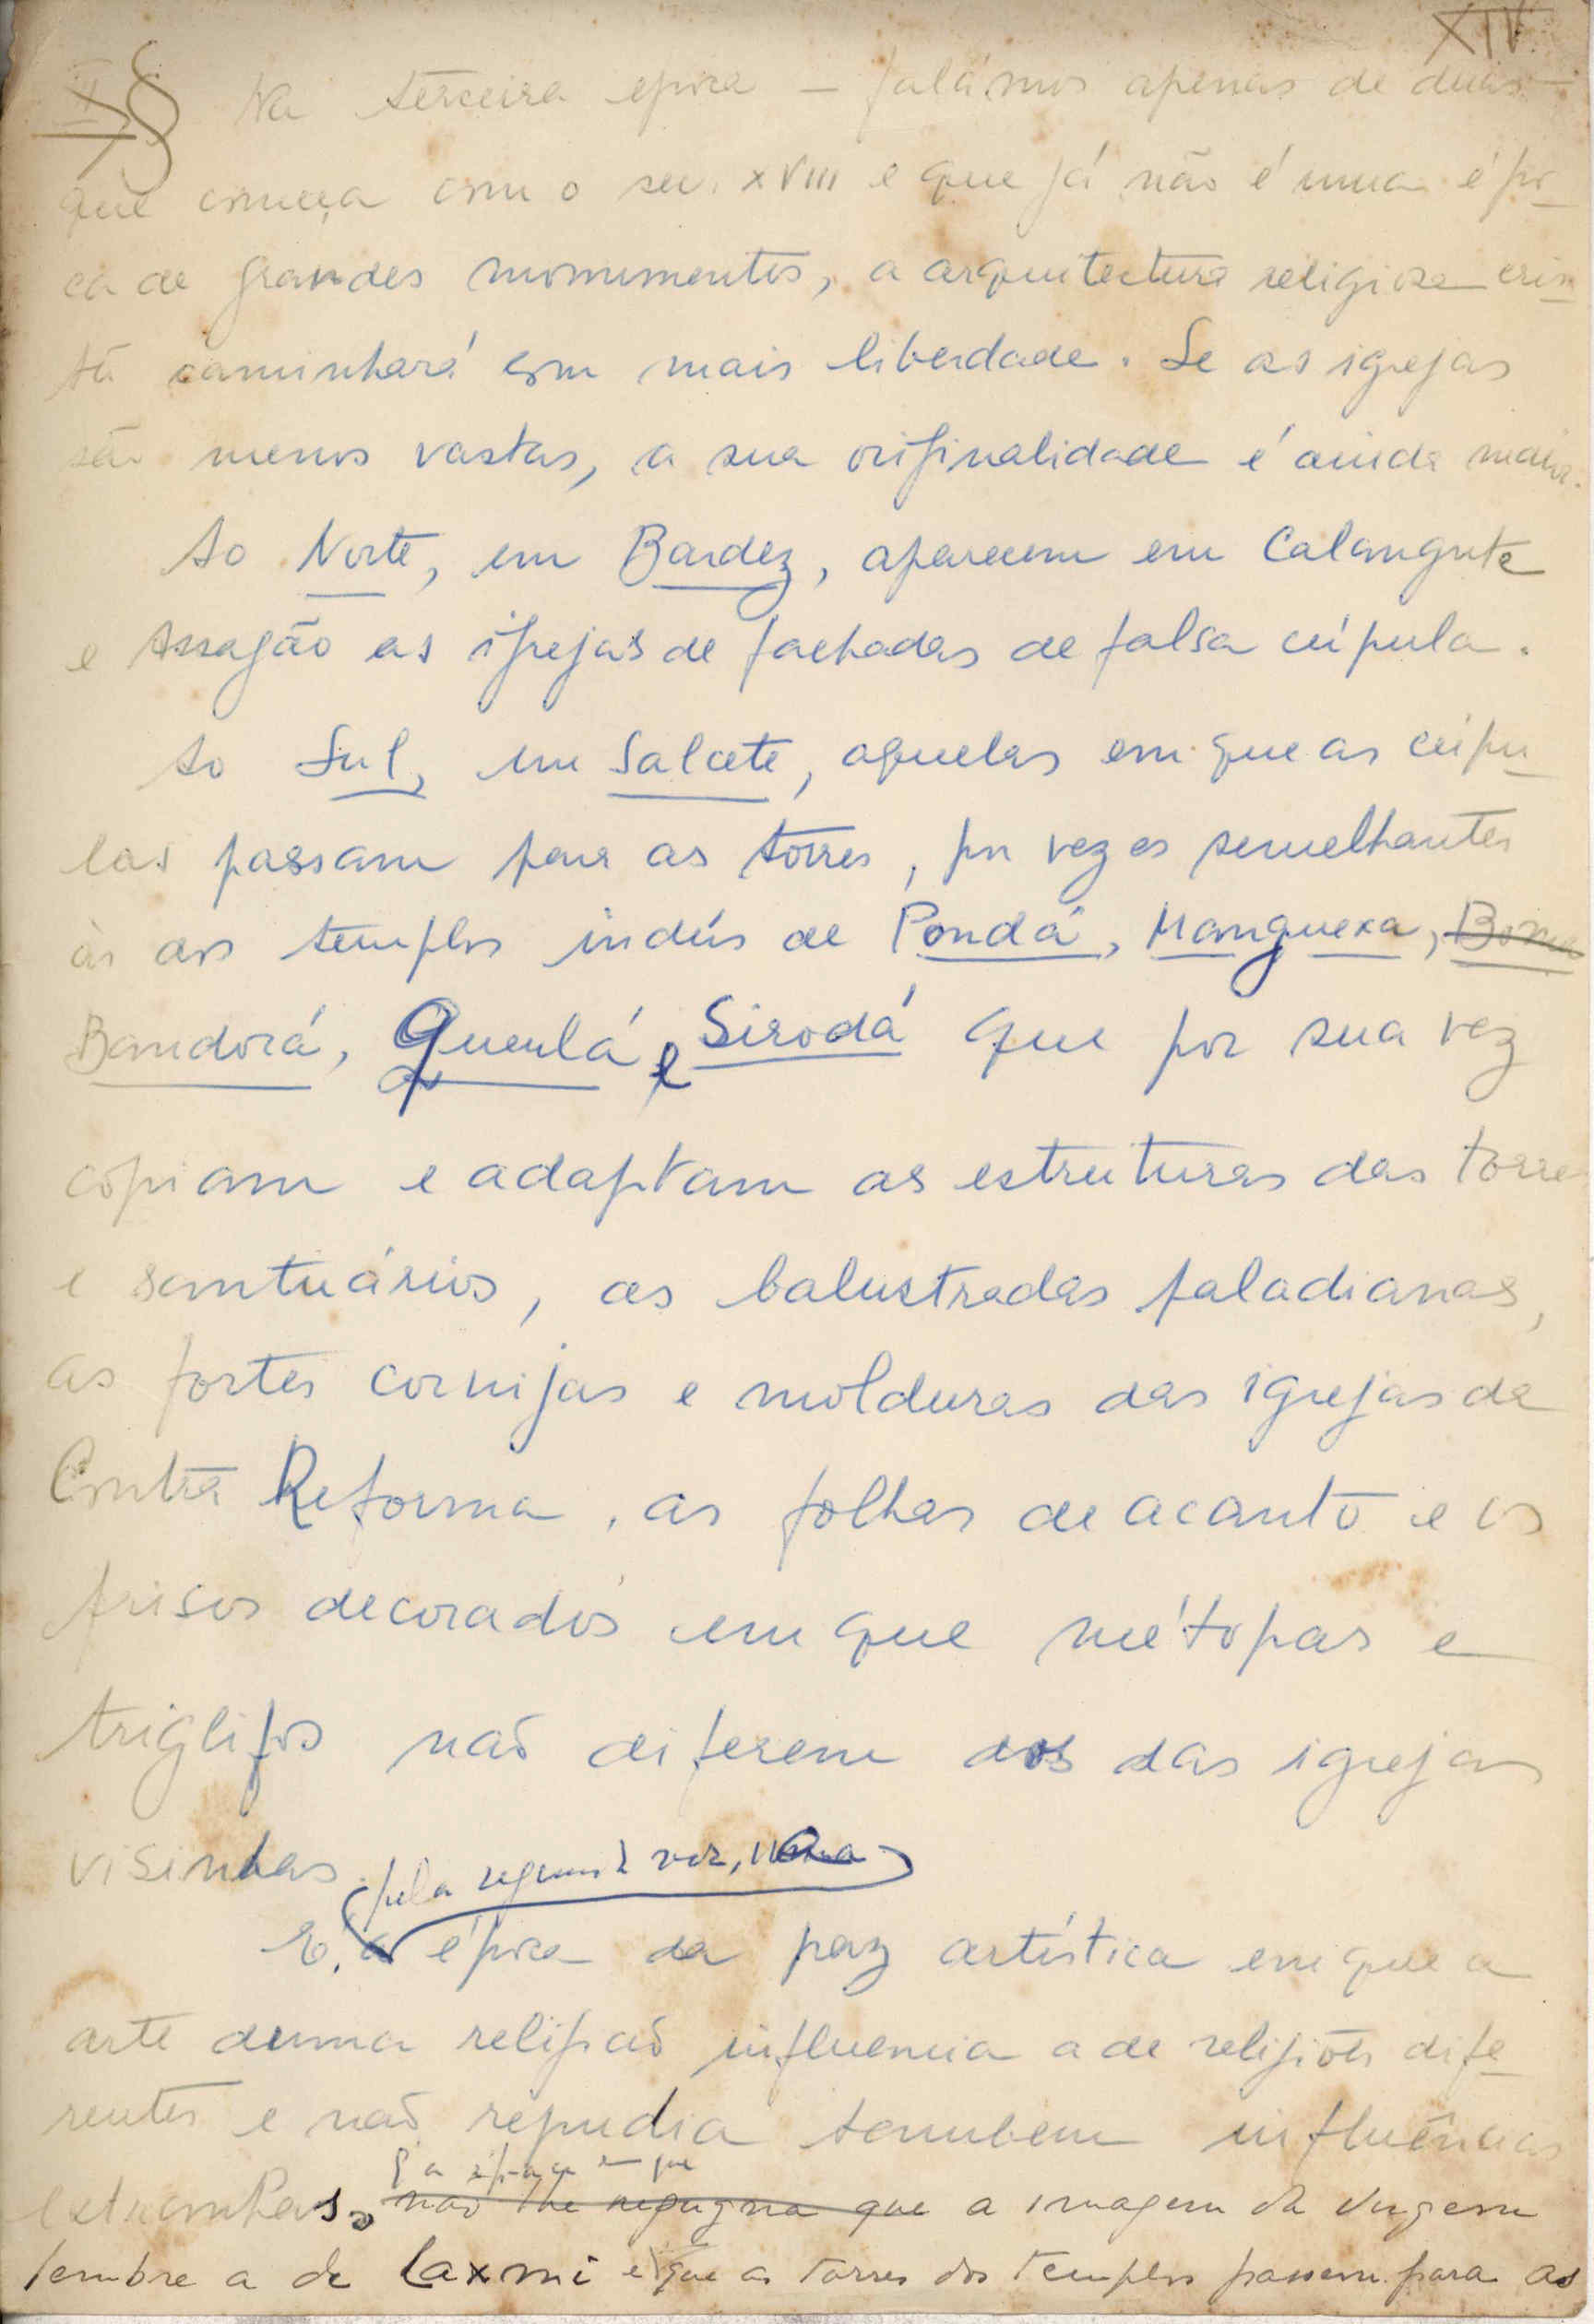 XIV
§ Na terceira época — falámos apenas de duas —
que começa com o sec. XVIII e que já não é uma épo-
ca de grandes monumentos, a arquitectura religiosa cris-
tã caminhará com mais liberdade. Se as igrejas
são menos vastas, a sua originalidade é ainda maior.
Ao Norte, em Bardez, aparecem em Calangute
e Assagão as igrejas de fachadas de falsa cúpula.
Ao Sul, em Salcete, aquelas em que as cúpu-
las passam para as torres, por vezes semelhantes
às dos templos indús de Pondá, Manguexa,
Bandorá, Queulá e Sirodá que por sua vez
copiam e adaptam as estruturas das torres
e santuários, as balustradas paladianas,
as fortes cornijas e molduras das igrejas da
Contra Reforma, as folhas de acanto e os
frisos decorados em que métopas e
triglifos não diferem dos das igrejas
visinhas.
(pela segunda vez,
É, a época da paz artística em que a
arte duma religião influencia a de religiões dife-
rentes e não repudia tambem influências
É a época em que
extranhas. não lhe repugna que a imagem da Virgem
lembre a de Laxmi e que as torres dos templos passem para as